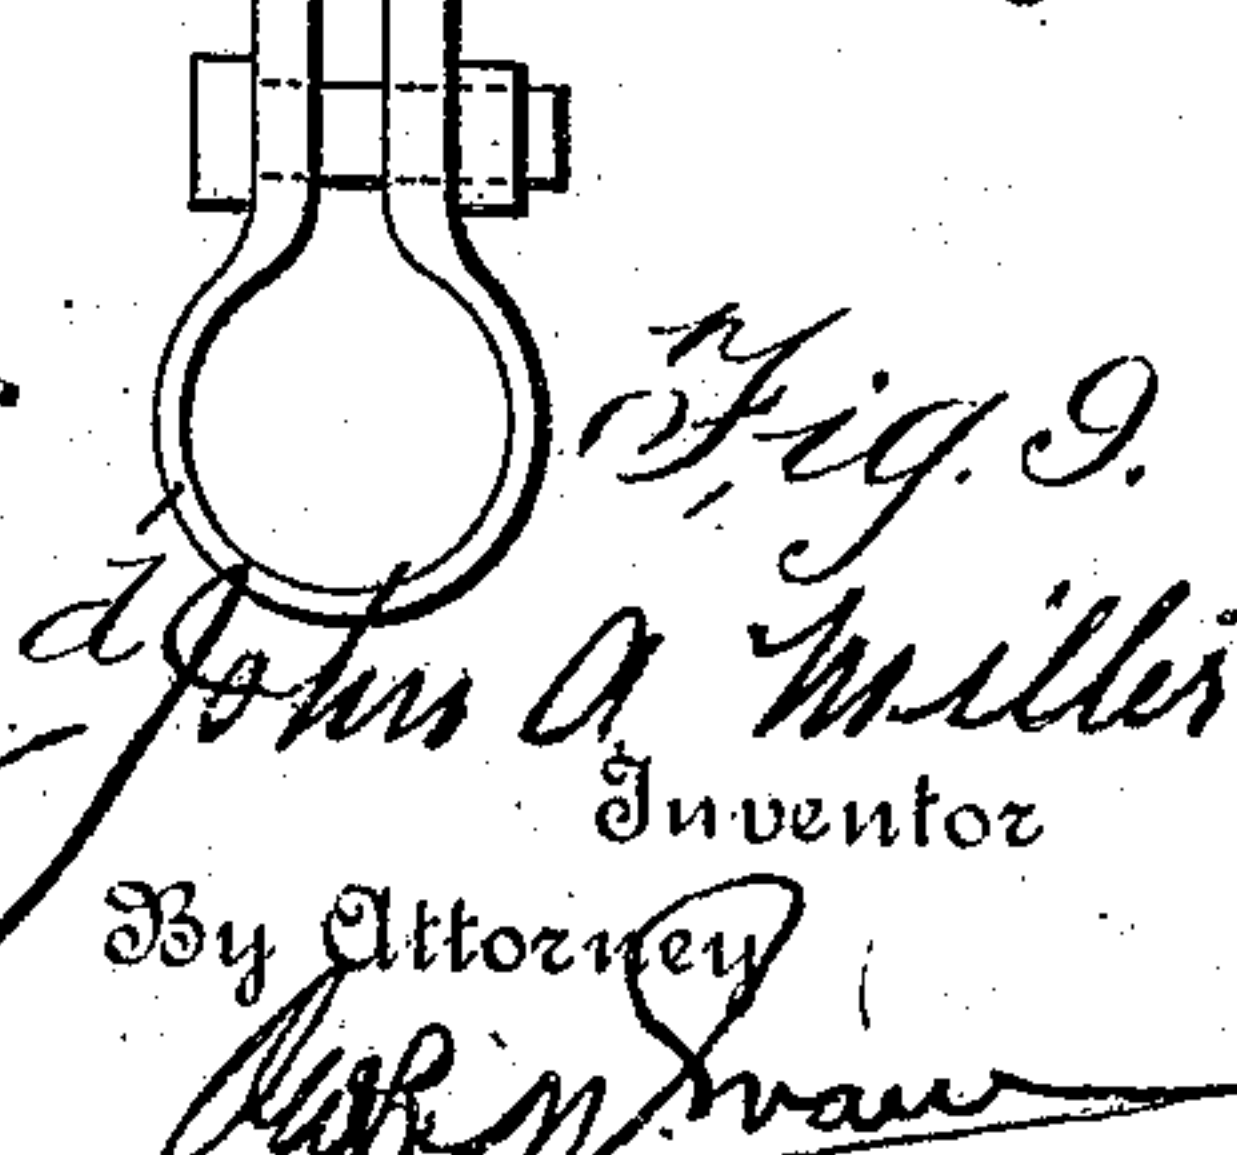 Fig. 9.
d
John A Miller
Inventor
By Attorney